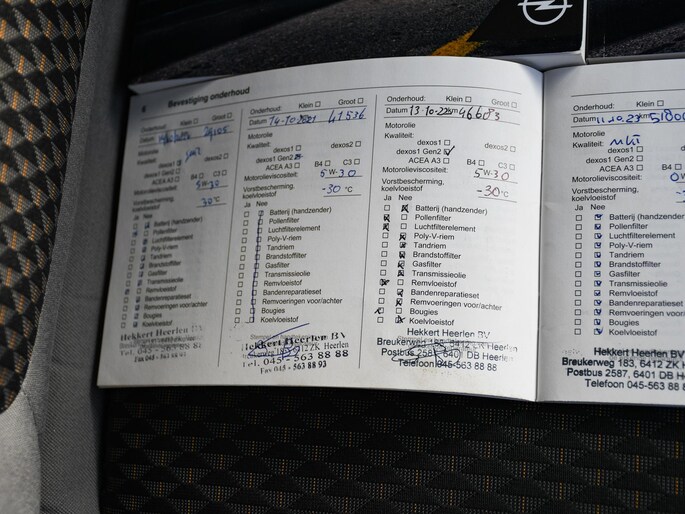 6 Bevestiging onderhoud
Onderhoud: Klein Groot
Datum
Motorolie
Kwaliteit:
dexos1 dexos2
dexos1 Gen2
ACEA A3 B4 C3
Motorolieviscositeit:
5W-30
Vorstbescherming,
koelvloeistof
-30°C
Ja Nee
Batterij (handzender)
Pollenfilter
Luchtfilterelement
Poly-V-riem
Tandriem
Brandstoffilter
Gasfilter
Transmissieolie
Remvloeistof
Bandenreparatieset
Remvoeringen voor/achter
Bougies
Koelvloeistof
Hekkert Heerlen BV
Tel. 045 - 563 88 88
Onderhoud: Klein Groot
Datum 14-10-2021 41536
Motorolie
Kwaliteit:
dexos1 dexos2
dexos1 Gen2
ACEA A3 B4 C3
Motorolieviscositeit:
5W-30
Vorstbescherming,
koelvloeistof
-30 °C
Ja Nee
Batterij (handzender)
Pollenfilter
Luchtfilterelement
Poly-V-riem
Tandriem
Brandstoffilter
Gasfilter
Transmissieolie
Remvloeistof
Bandenreparatieset
Remvoeringen voor/achter
Bougies
Koelvloeistof
Hekkert Heerlen BV
6412 ZK Heerlen
Tel. 045 - 563 88 88
Fax 045 - 563 88 93
Onderhoud: Klein Groot
Datum 13-10-22 km 46683
Motorolie
Kwaliteit:
dexos1 dexos2
dexos1 Gen2
ACEA A3 B4 C3
Motorolieviscositeit:
5W-30
Vorstbescherming,
koelvloeistof
-30°C
Ja Nee
Batterij (handzender)
Pollenfilter
Luchtfilterelement
Poly-V-riem
Tandriem
Brandstoffilter
Gasfilter
Transmissieolie
Remvloeistof
Bandenreparatieset
Remvoeringen voor/achter
Bougies
Koelvloeistof
Hekkert Heerlen BV
Breukerweg 183, 6412 ZK Heerlen
Postbus 2587, 6401 DB Heerlen
Telefoon 045-563 88 88
Onderhoud: Klein
Datum 11.10.23 km 51800
Motorolie
Kwaliteit:
dexos1
dexos1 Gen2
ACEA A3
Motorolieviscositeit:
Vorstbescherming,
koelvloeistof
Ja Nee
Batterij (handzender
Pollenfilter
Luchtfilterelement
Poly-V-riem
Tandriem
Brandstoffilter
Gasfilter
Transmissieolie
Remvloeistof
Bandenreparatieset
Remvoeringen voor/
Bougies
Koelvloeistof
Hekkert Heerlen BV
Breukerweg 183, 6412 ZK H
Postbus 2587, 6401 DB He
Telefoon 045-563 88 8